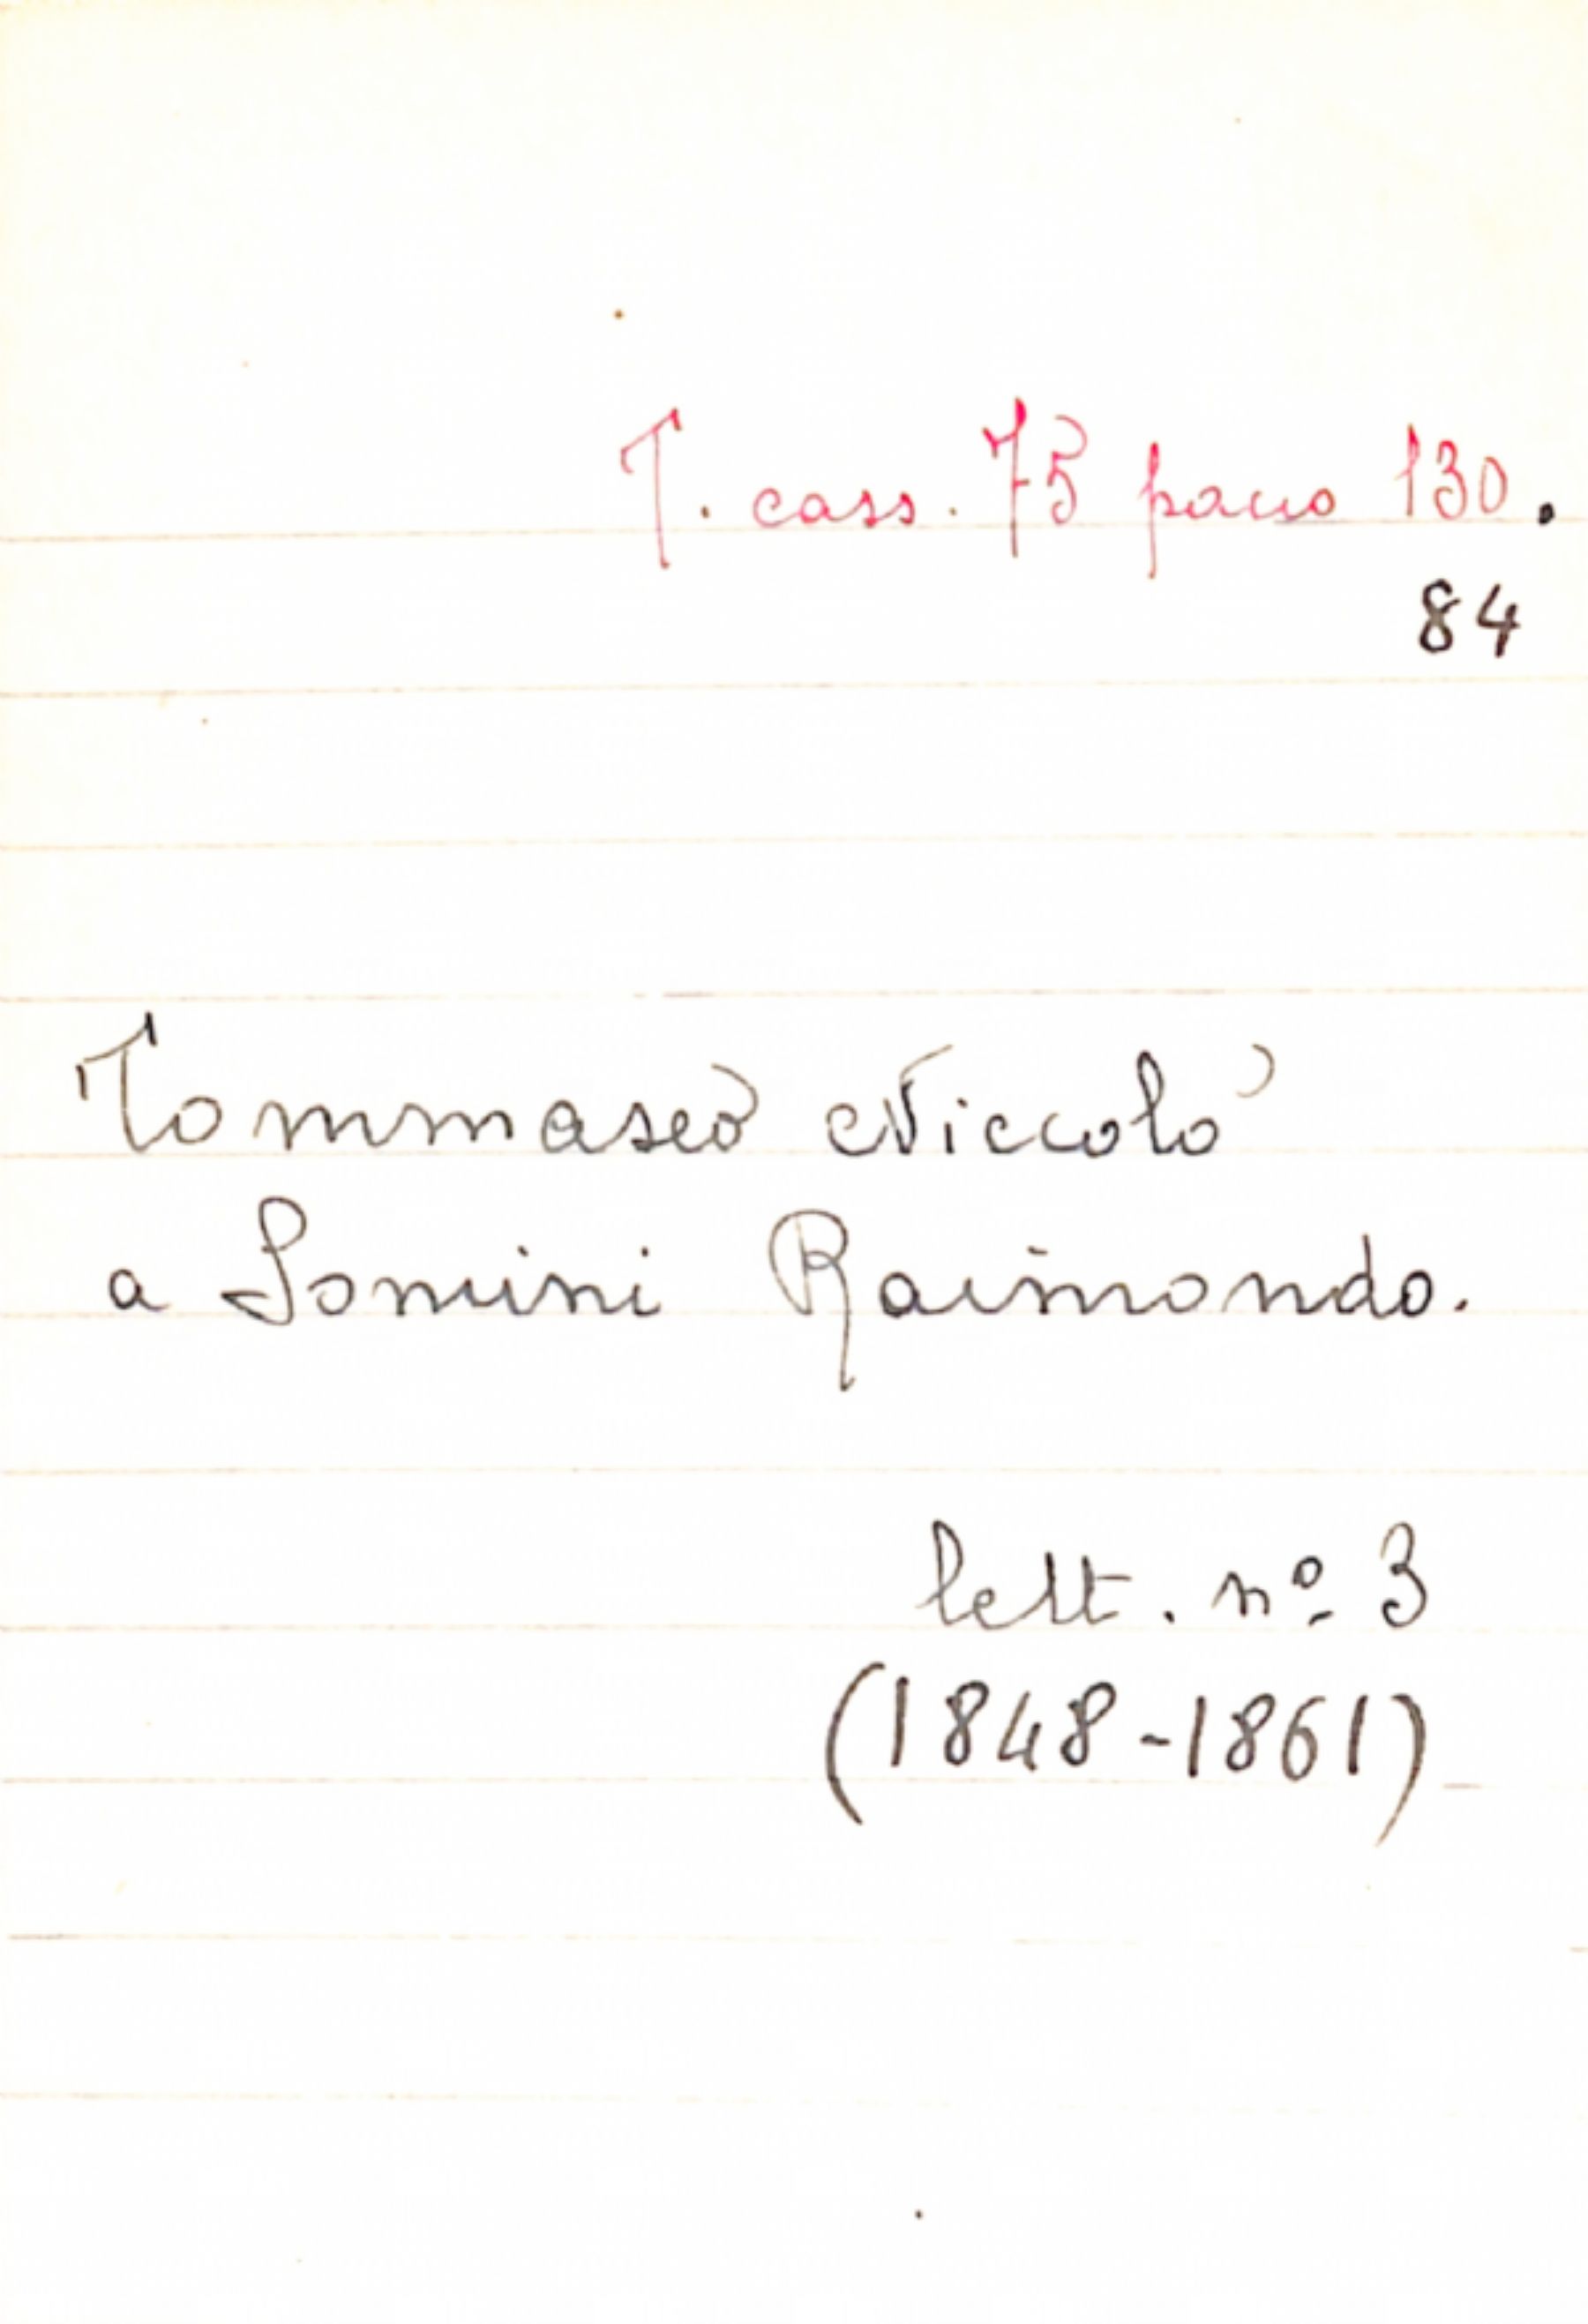 T. cass. 75 pacco 130.
84
Tommaseò Niccolò
a Somini Raimondo.
lett. nº 3
(1848-1861)